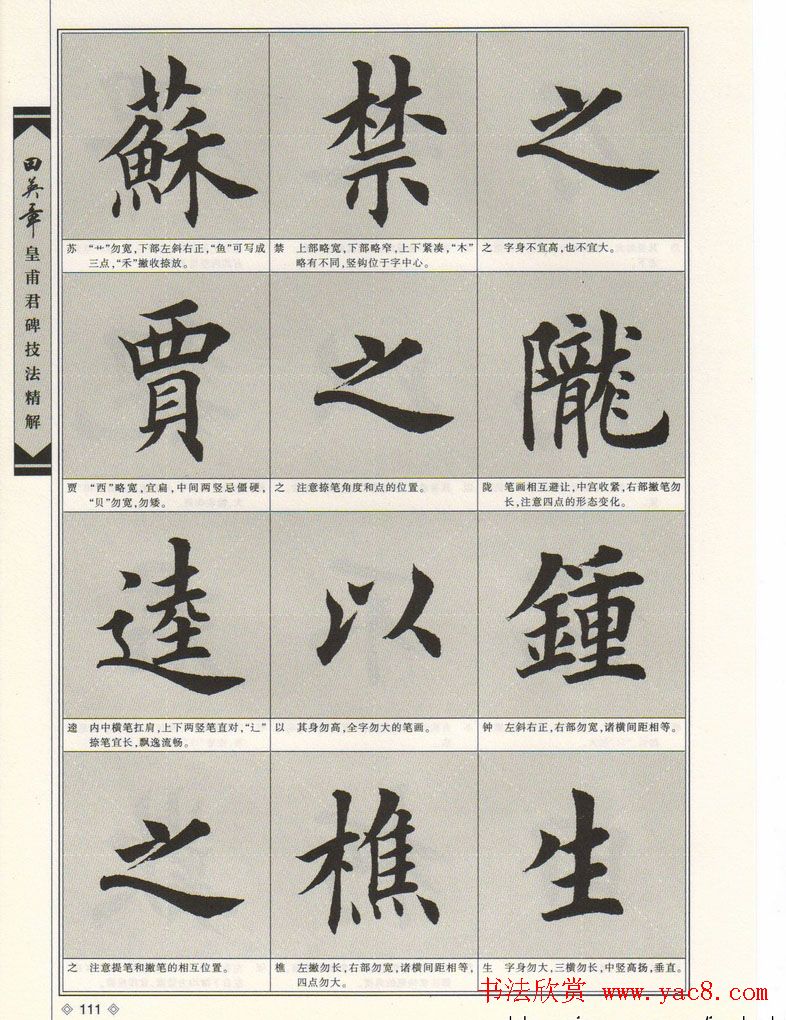 田英章
皇甫君碑技法精解
蘇 禁 之
苏 “艹”勿宽,下部左斜右正,“鱼”可写成
三点,“禾”撇收捺放。
禁 上部略宽,下部略窄,上下紧凑,“木”
略有不同,竖钩位于字中心。
之 字身不宜高,也不宜大。
賈 之 隴
贾 “西”略宽,宜扁,中间两竖忌僵硬,
“贝”勿宽,勿矮。
之 注意捺笔角度和点的位置。
陇 笔画相互避让,中宫收紧,右部撇笔勿
长,注意四点的形态变化。
逵 以 鍾
逵 内中横笔扛肩,上下两竖笔直对,“辶”
捺笔宜长,飘逸流畅。
以 其身勿高,全字勿大的笔画。
钟 左斜右正,右部勿宽,诸横间距相等。
之 樵 生
之 注意提笔和撇笔的相互位置。
樵 左撇勿长,右部勿宽,诸横间距相等,
四点勿大。
生 字身勿大,三横勿长,中竖高扬,垂直。
111
书法欣赏 www.yac8.com